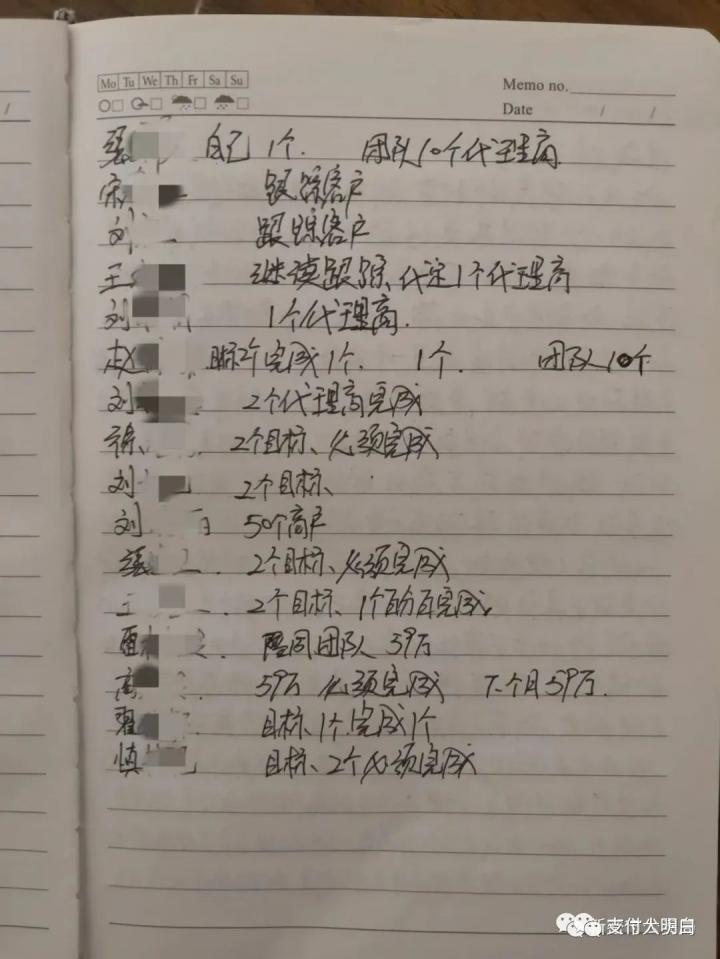 Mo Tu We Th Fr Sa Su
Memo no.
Date / /
自己 1个. 团队10个代理商
宋 跟踪客户
刘 跟踪客户
王 继续跟踪、代定1个代理商
刘 1个代理商.
赵 目标2个完成1个. 1个. 团队10个
刘 2个代理商完成
徐. 2个目标、必须完成
刘 2个目标、
刘 50个商户
2个目标、必须完成
王 . 2个目标、1个百分百完成.
团队 59万
高 . 59万 必须完成 下个月59万.
翟 目标、1个完成1个
慎 目标、2个必须完成
新支付大明白